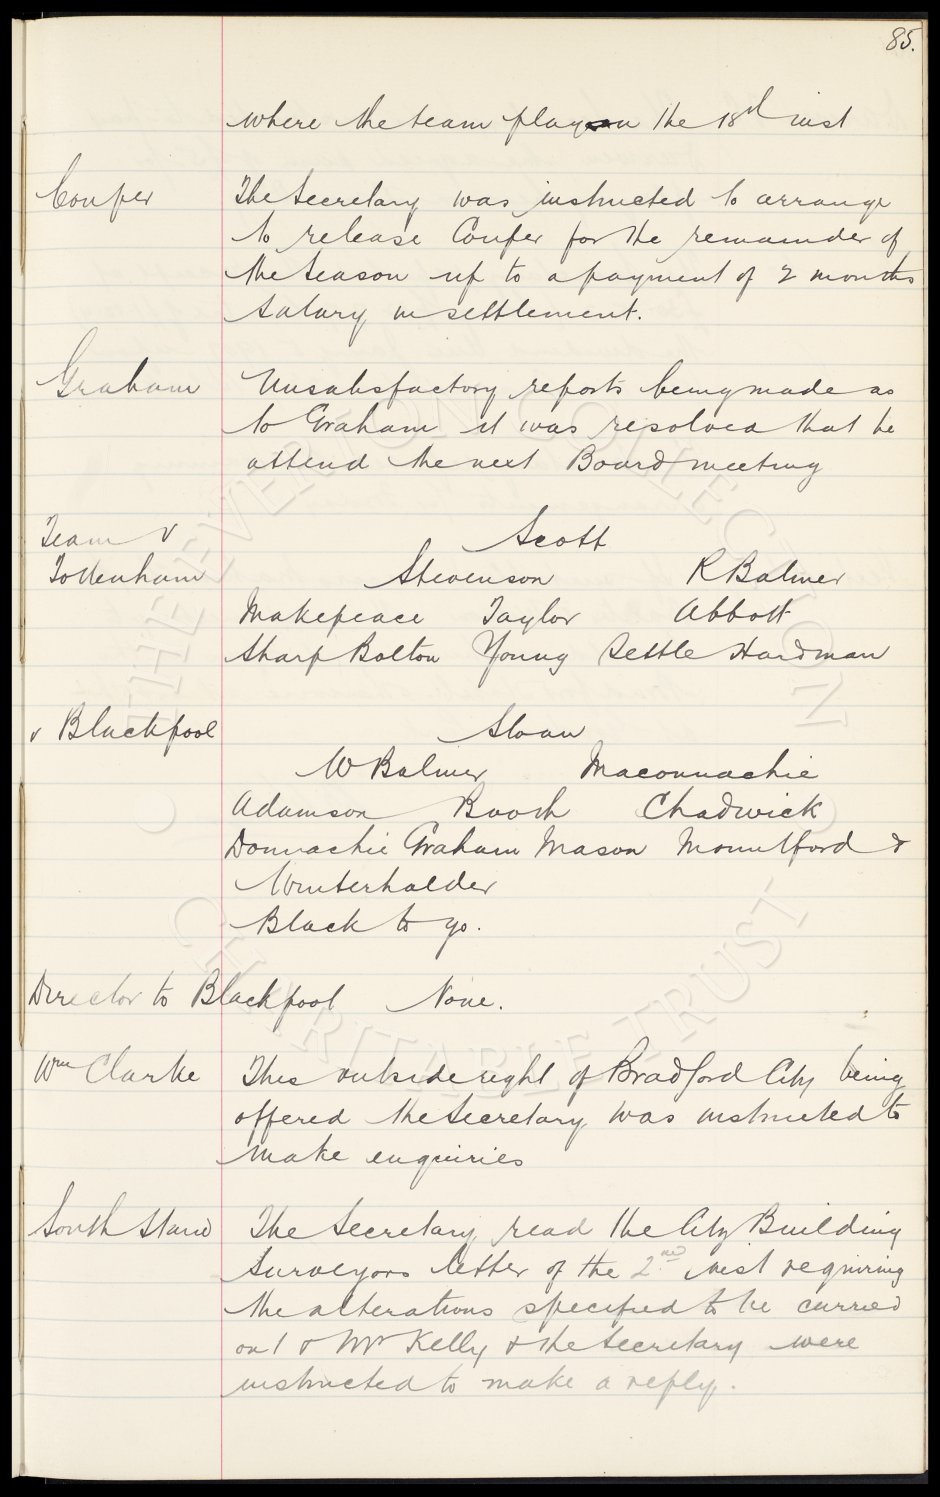 85.
where the team play on the 18th inst
Couper The Secretary was instructed to arrange
to release Couper for the remainder of
the Season up to a payment of 2 months
Salary in settlement.
Graham Unsatisfactory reports being made as
to Graham it was resolved that he
attend the next Board meeting
Team v Scott
Tottenham Stevenson R Balmer
Makepeace Taylor Abbott
Sharp Bolton Young Settle Hardman
v Blackpool Sloan
W Balmer Maconnachie
Adamson Booth Chadwick
Donnachie Graham Mason Mountford &
Winterhalder
Black to go.
Director to Blackpool None.
Wm Clarke This outside right of Bradford City being
offered the Secretary was instructed to
make enquiries
South Stand The Secretary read the City Building
Surveyors letter of the 2nd inst requiring
the alterations specified to be carried
out & Mr Kelly & the Secretary were
instructed to make a reply.
THE EVERTON COLLECTION
CHARITABLE TRUST